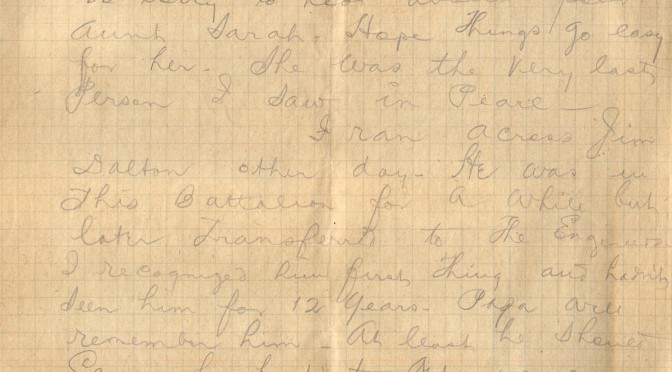 to hear about poor
Aunt Sarah. Hope Things go easy
for her. She was the very last
Person I saw in Pearl —
I ran across Jim
Dalton other day. He was in
This Battalion for a while but
later Transferred to The Engineers
I recognized him first Thing and havnt
seen him for 12 years. Papa will
remember him. At least he should